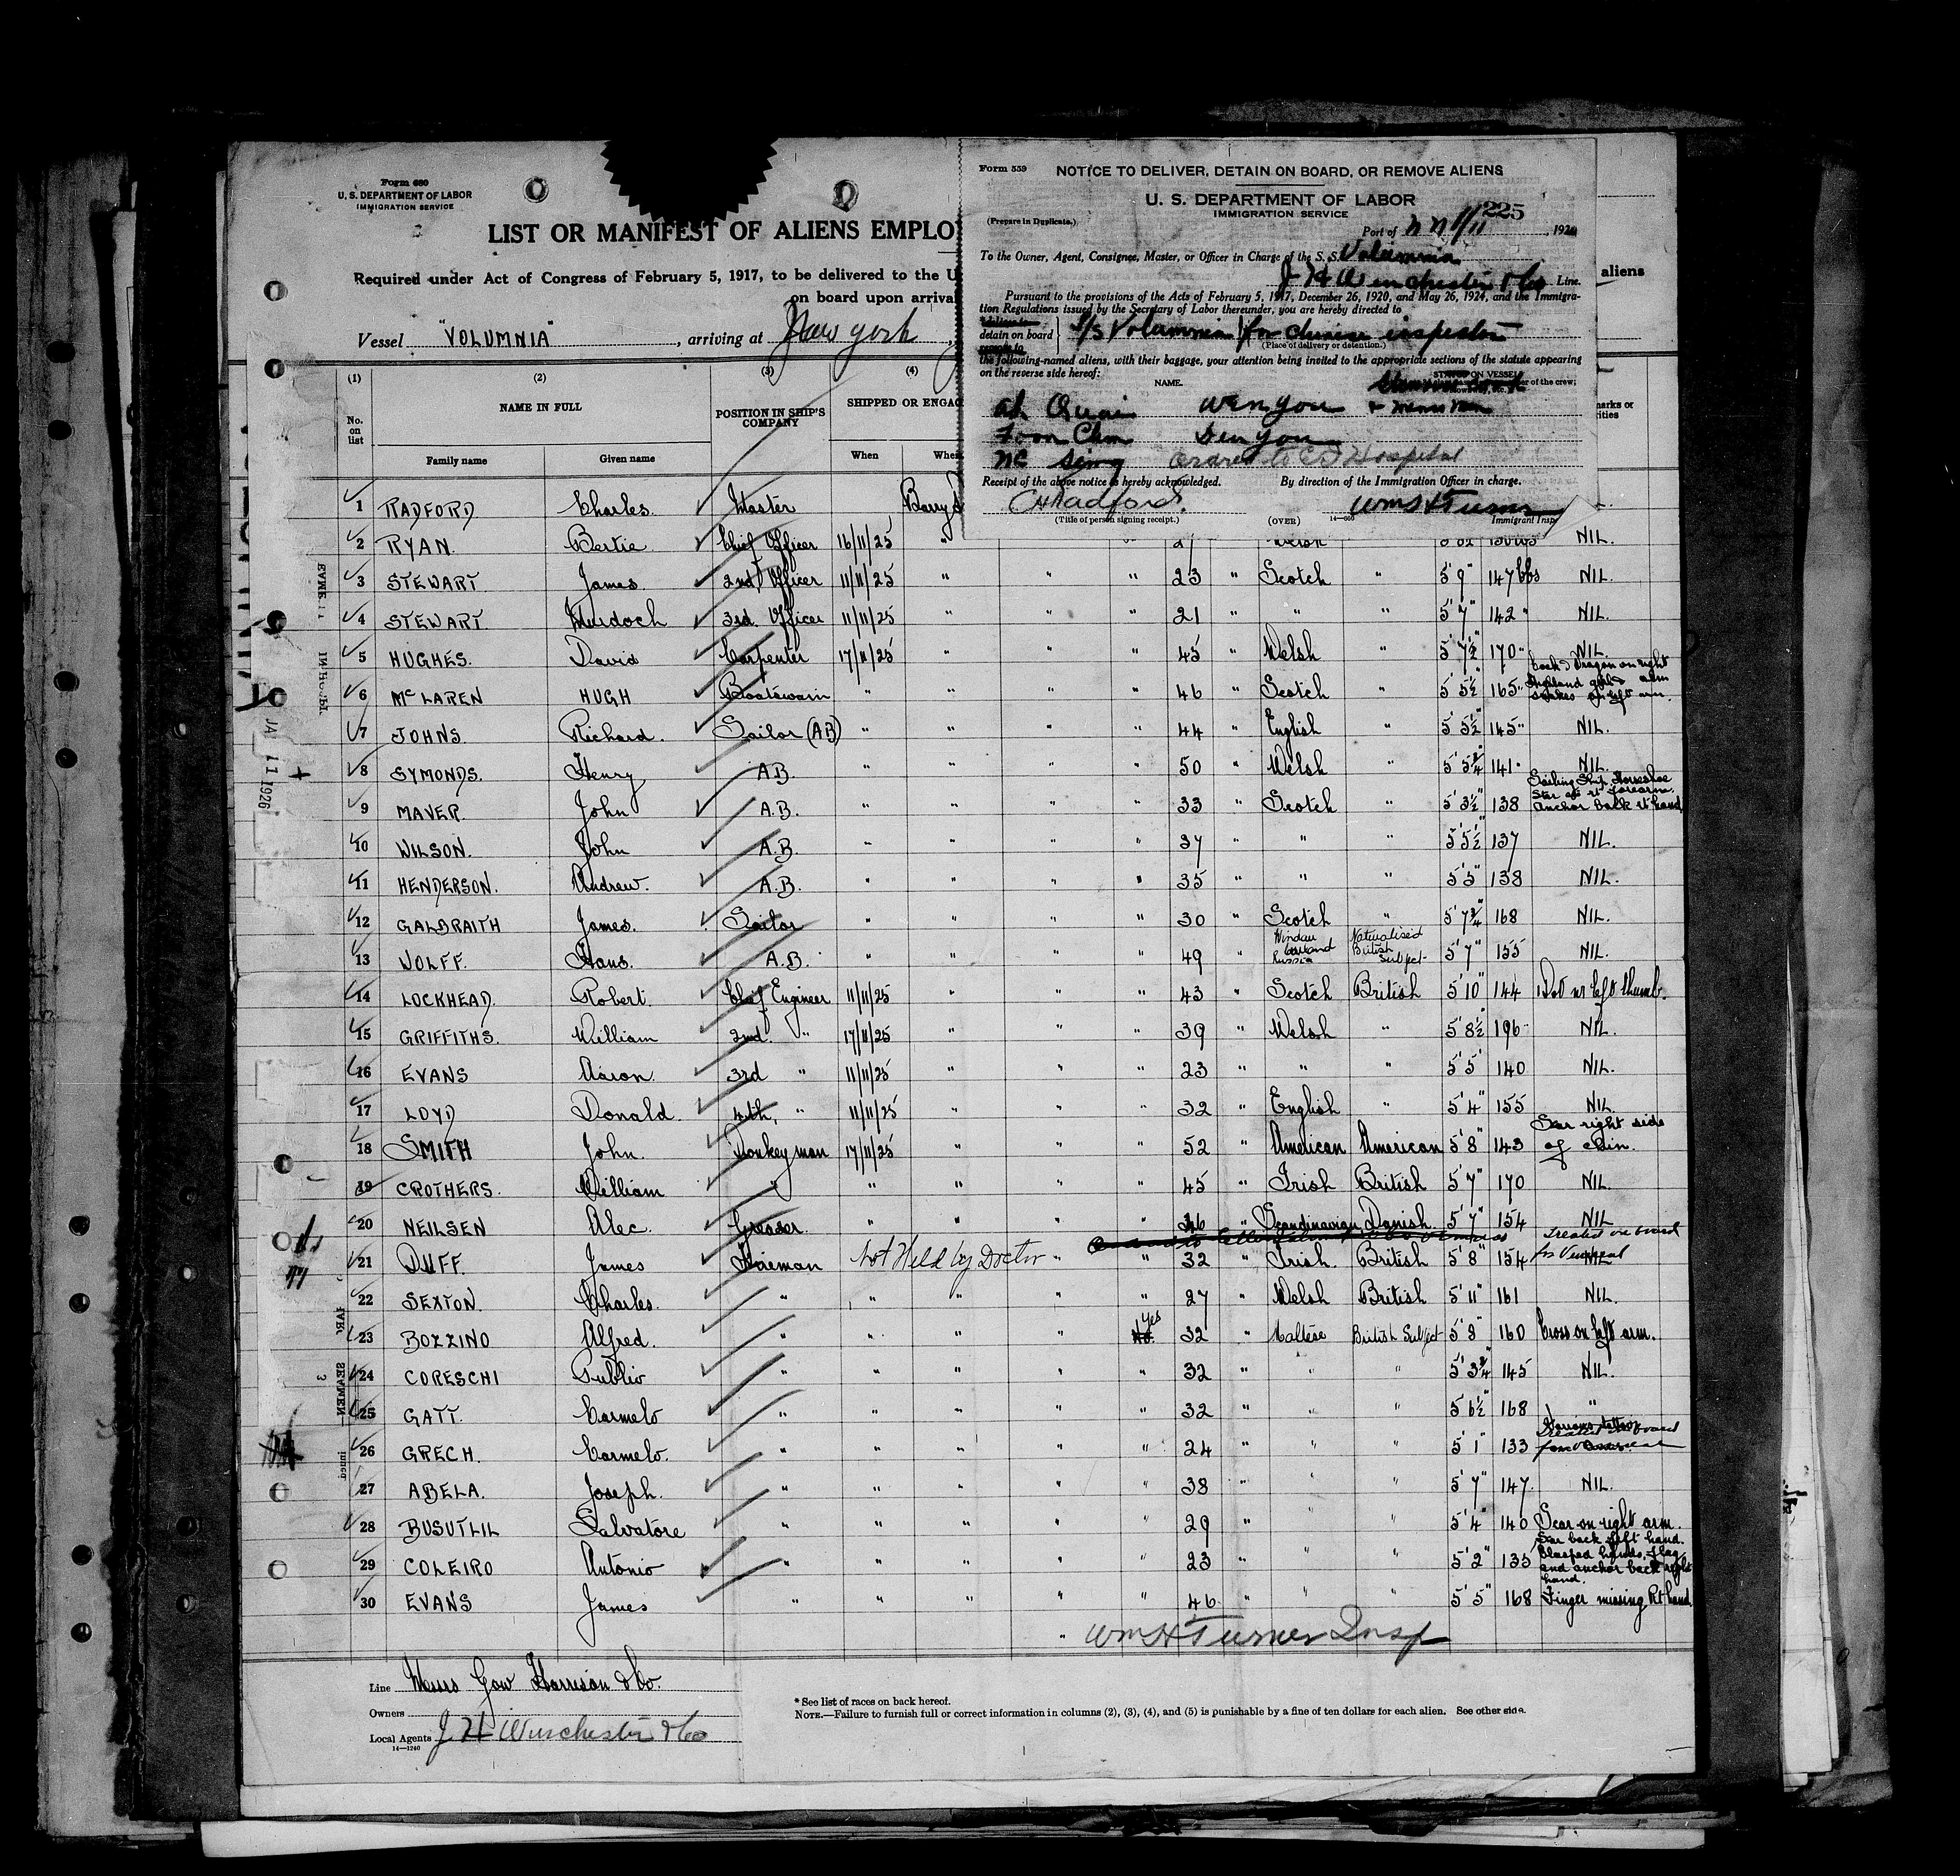 Form 680
U. S. DEPARTMENT OF LABOR
IMMIGRATION SERVICE
LIST OR MANIFEST OF ALIENS EMPLO
Required under Act of Congress of February 5, 1917, to be delivered to the U
on board upon arrival
Vessel "VOLUMNIA", arriving at New York
aliens
Form 559
NOTICE TO DELIVER, DETAIN ON BOARD, OR REMOVE ALIENS
U. S. DEPARTMENT OF LABOR
IMMIGRATION SERVICE
(Prepare in Duplicate.)
225
Port of NY 1/11, 192
To the Owner, Agent, Consignee, Master, or Officer in Charge of the S. S. Volumnia
J H Winchester & Co Line.
Pursuant to the provisions of the Acts of February 5, 1917, December 26, 1920, and May 26, 1924, and the Immigra-
tion Regulations issued by the Secretary of Labor thereunder, you are hereby directed to
detain on board } S/S Volumnia for chinese inspector
(Place of delivery or detention.)
the following-named aliens, with their baggage, your attention being invited to the appropriate sections of the statute appearing
on the reverse side hereof:
NAME.
STATUS ON VESSEL
er of the crew;
Ah Quai Wen You
Foon Chin Den You
Sing to Hospital
Receipt of the above notice is hereby acknowledged.
By direction of the Immigration Officer in charge.
CH Radford.
Wm H Turner
(Title of person signing receipt.)
(OVER)
14—560
Immigrant Insp
(1) (2) (3) (4)
No. on list
NAME IN FULL
POSITION IN SHIP'S COMPANY
SHIPPED OR ENGAG
Family name Given name When Whe
marks or
ities
JA 11 1926
1 RADFORD Charles. Master Barry
2 RYAN. Bertie Chief Officer 16/11/25 " " 27 Welsh NIL.
3 STEWART James. 2nd Officer 11/11/25 " " " 23 " Scotch " 5'9" 147 lbs NIL.
4 STEWART Murdoch 3rd. Officer 11/11/25 " " " 21 " " " 5'7" 142 " NIL.
5 HUGHES. David Carpenter 17/11/25 " " " 45 " Welsh " 5'7½" 170 " NIL.
6 McLAREN HUGH Boatswain " " " " 46 " Scotch " 5'5½" 165 " Dragon on right arm Highland girl & snakes on left arm.
7 JOHNS. Richard. Sailor (AB) " " " " 44 " English " 5'5½" 145 " NIL.
8 SYMONDS. Henry A.B. " " " " 50 " Welsh " 5'5¾" 141 " NIL.
9 MAVER. John A.B. " " " " 33 " Scotch " 5'3½" 138 Sailing Ship, Horseshoe Star rt forearm. Anchor back rt hand
10 WILSON. John A.B. " " " " 37 " " " 5'5½" 137 NIL.
11 HENDERSON. Andrew. A.B. " " " " 35 " " " 5'5" 138 NIL.
12 GALBRAITH James. Sailor " " " " 30 " Scotch " 5'7¾" 168 NIL.
13 WOLFF. Hans. A.B. " " " " 49 " Windau Courland Russia Naturalised British Subject 5'7" 155 NIL.
14 LOCKHEAD. Robert. Chief Engineer 11/11/25 " " " 43 " Scotch British 5'10" 144 Dot nr left thumb.
15 GRIFFITHS. William 2nd. " 17/11/25 " " " 39 " Welsh " 5'8½" 196 NIL.
16 EVANS Aaron. 3rd " 11/11/25 " " " 23 " " " 5'5" 140 NIL.
17 LOYD Donald. 4th, " 11/11/25 " " " 32 " English " 5'4" 155 NIL.
18 SMITH John. Donkeyman 17/11/25 " " " 52 " American American 5'8" 143 Scar right side of chin.
19 CROTHERS. William " " " " " 45 " Irish British 5'7" 170 NIL.
20 NEILSEN Alec. Greaser. " " " " 36 " Scandinavian Danish. 5'7" 154 NIL
21 DUFF. James Fireman Not Held by Doctor " " 32 " Irish. British 5'8" 154 treated on board for Venereal NIL
22 SEXTON. Charles. " " " " " 27 " Welsh British 5'11" 161 NIL.
23 BOZZINO Alfred. " " " " Yes 32 " Maltese British Subject 5'8" 160 Cross on left arm.
24 CORESCHI Publio " " " " " 32 " " " 5'3¾" 145 NIL.
25 GATT. Carmelo " " " " " 32 " " " 5'6½" 168 "
26 GRECH. Carmelo. " " " " " 24 " " " 5'1" 133
27 ABELA. Joseph. " " " " " 38 " " " 5'7" 147. NIL.
28 BUSUTLIL Salvatore " " " " " 29 " " " 5'4" 140 Scar on right arm.
29 COLEIRO Antonio " " " " " 23 " " " 5'2" 135 Scar back left hand. Clasped hands, flag and anchor back right hand.
30 EVANS James " " " " " 46 " " " 5'5" 168 Finger missing Rt hand.
Wm H Turner Insp
Line Messrs Gow Harrison & Co.
Owners
Local Agents J H Winchester & Co
14—1240
* See list of races on back hereof.
NOTE.—Failure to furnish full or correct information in columns (2), (3), (4), and (5) is punishable by a fine of ten dollars for each alien. See other side.